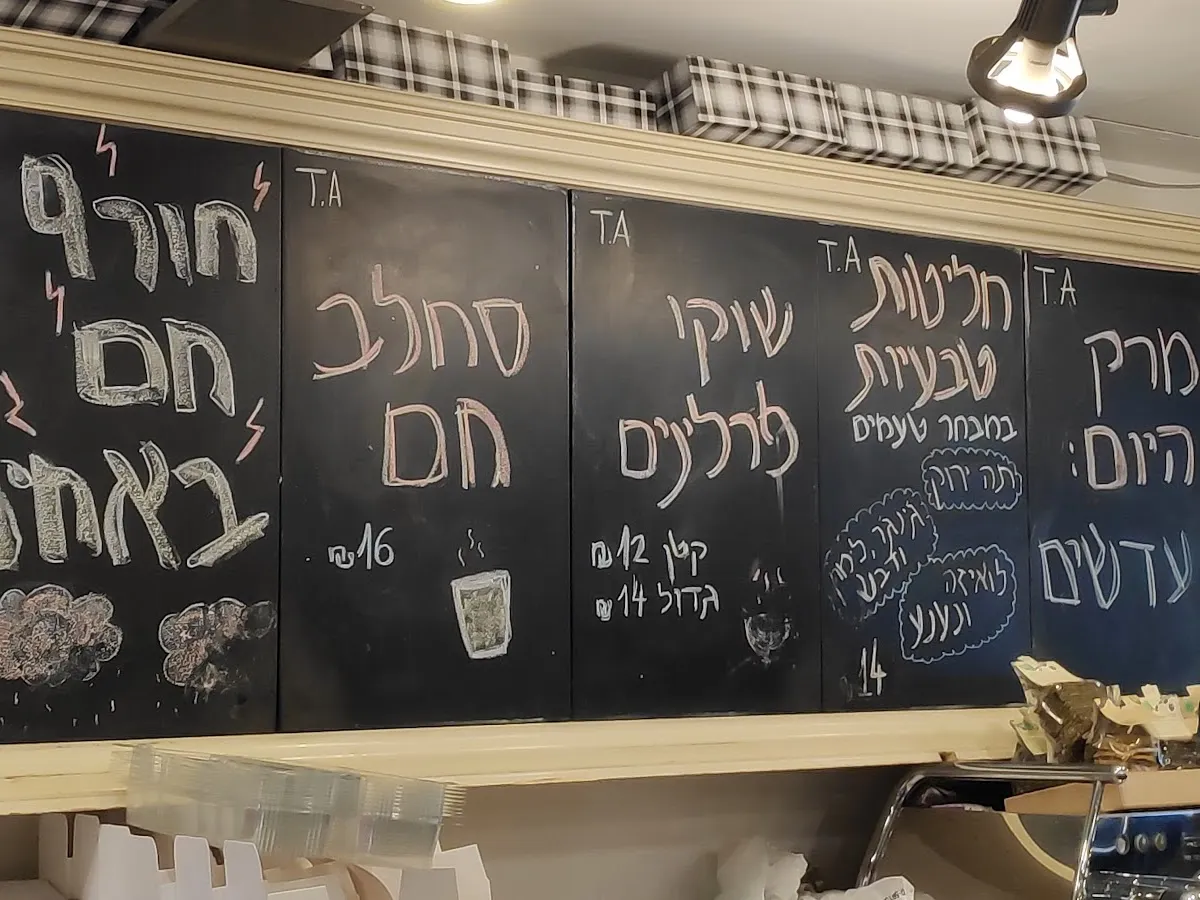 T.A
מרק
היום:
עדשים
T.A
חליטות
טבעיות
במבחר טעמים
תה ירוק
לואיזה
ונענע
14
T.A
שוקו
פרלינים
קטן 12 ₪
גדול 14 ₪
T.A
סחלב
חם
16 ₪
חורף
חם